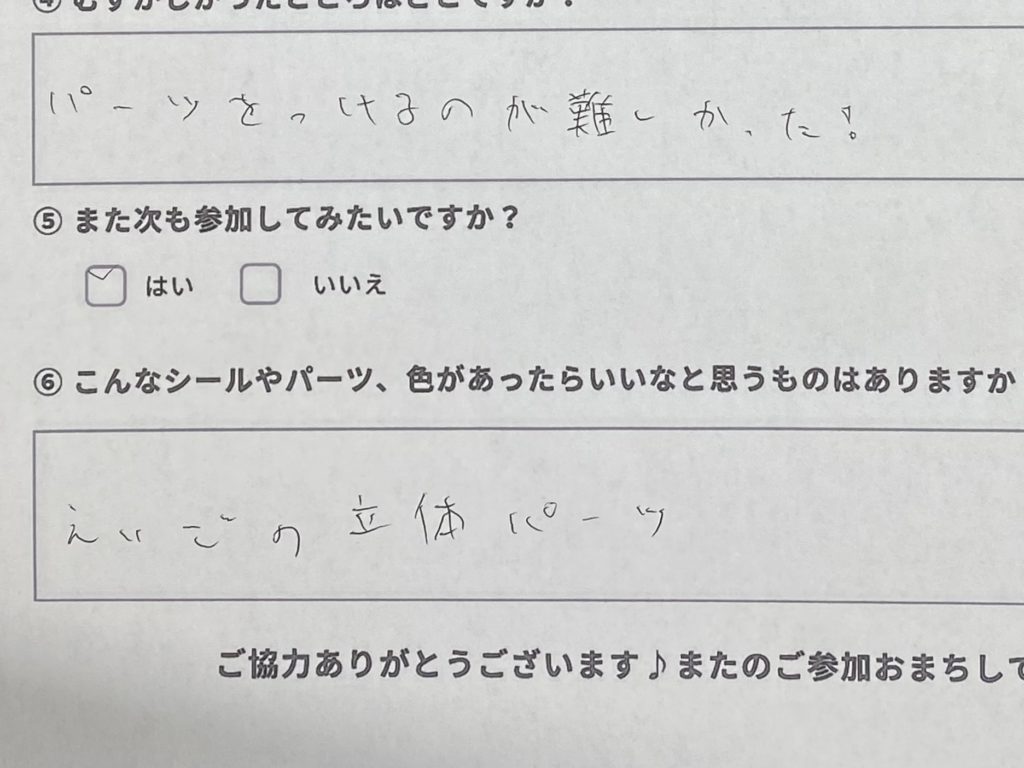 ④ むずかしかったところはどこですか？
パーツをつけるのが難しかった!
⑤ また次も参加してみたいですか？
はい いいえ
⑥ こんなシールやパーツ、色があったらいいなと思うものはありますか
えいごの立体パーツ
ご協力ありがとうございます♪またのご参加おまちして